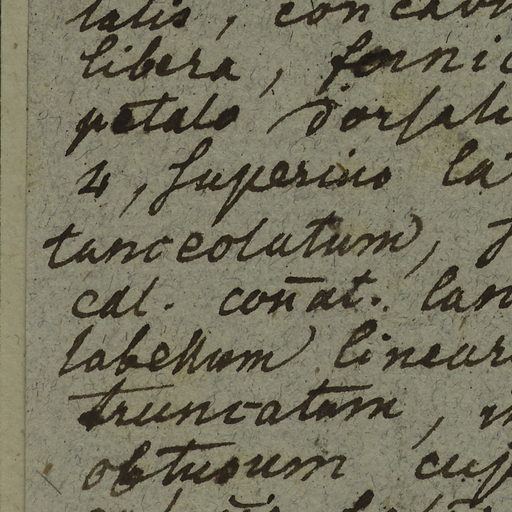 latis, concav
libera, fornic
petalo dorsali
4, superius la
lanceolatum,
cal. con̄at. lan
labellum linear
truncatum,
obtusum cus